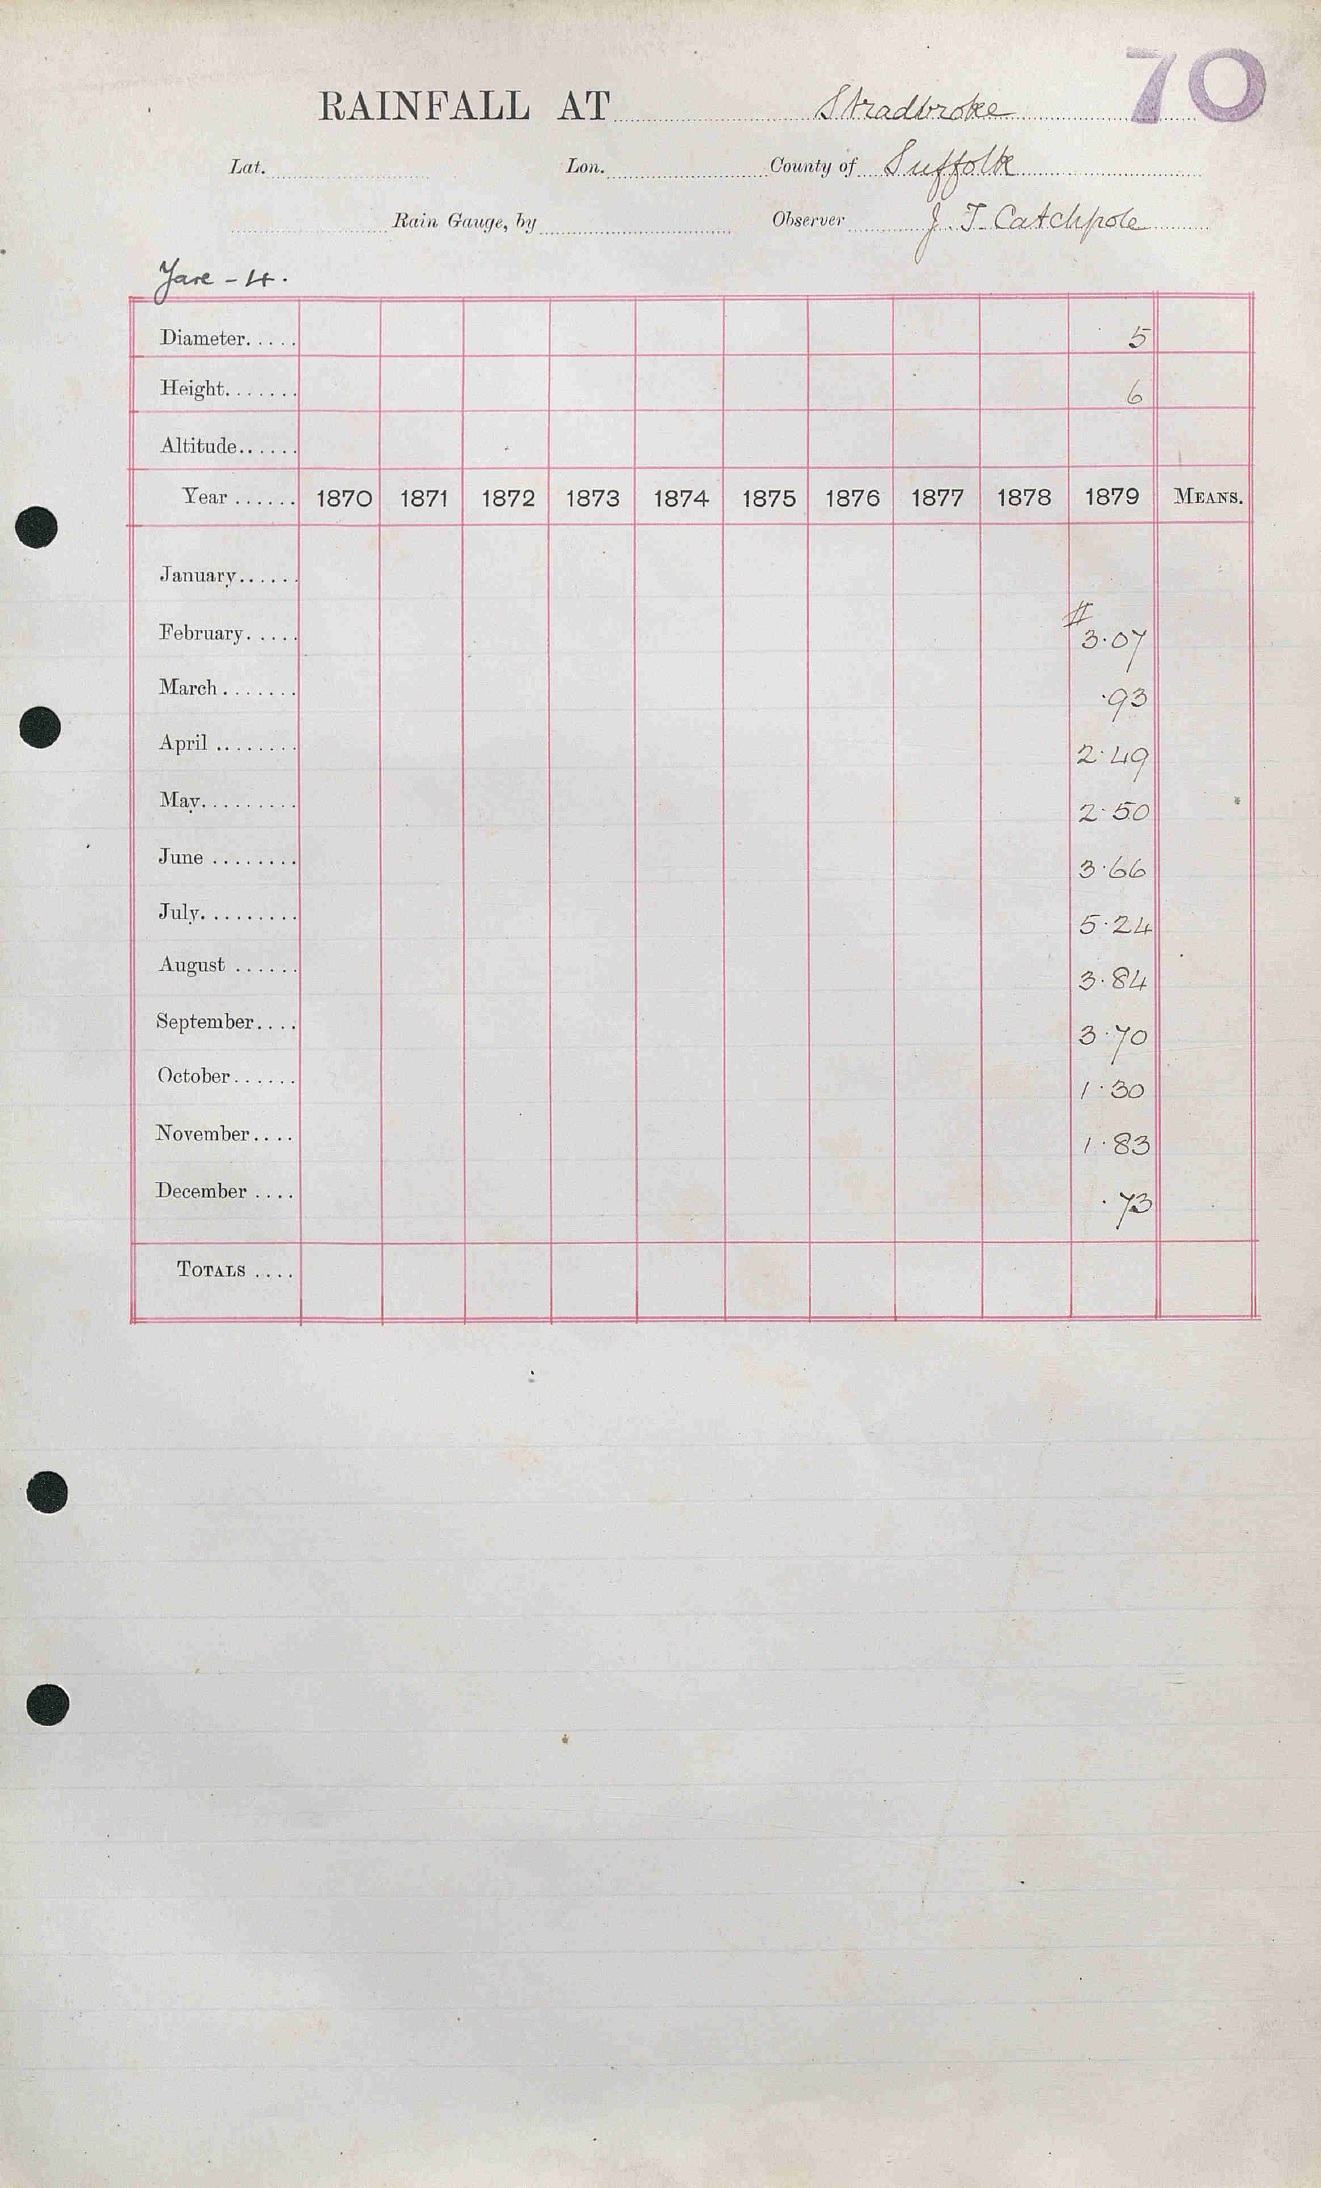 70
RAINFALL AT Stradbroke
Lat. Lon. County of Suffolk
Rain Gauge, by Observer J. T. Catchpole
Yare - 4.
Diameter..... 5
Height....... 6
Altitude......
Year ...... 1870 1871 1872 1873 1874 1875 1876 1877 1878 1879 MEANS.
January......
#
February..... 3.07
March....... .93
April ........ 2.49
May......... 2.50
June ........ 3.66
July......... 5.24
August ...... 3.84
September.... 3.70
October...... 1.30
November.... 1.83
December .... .73
TOTALS ....